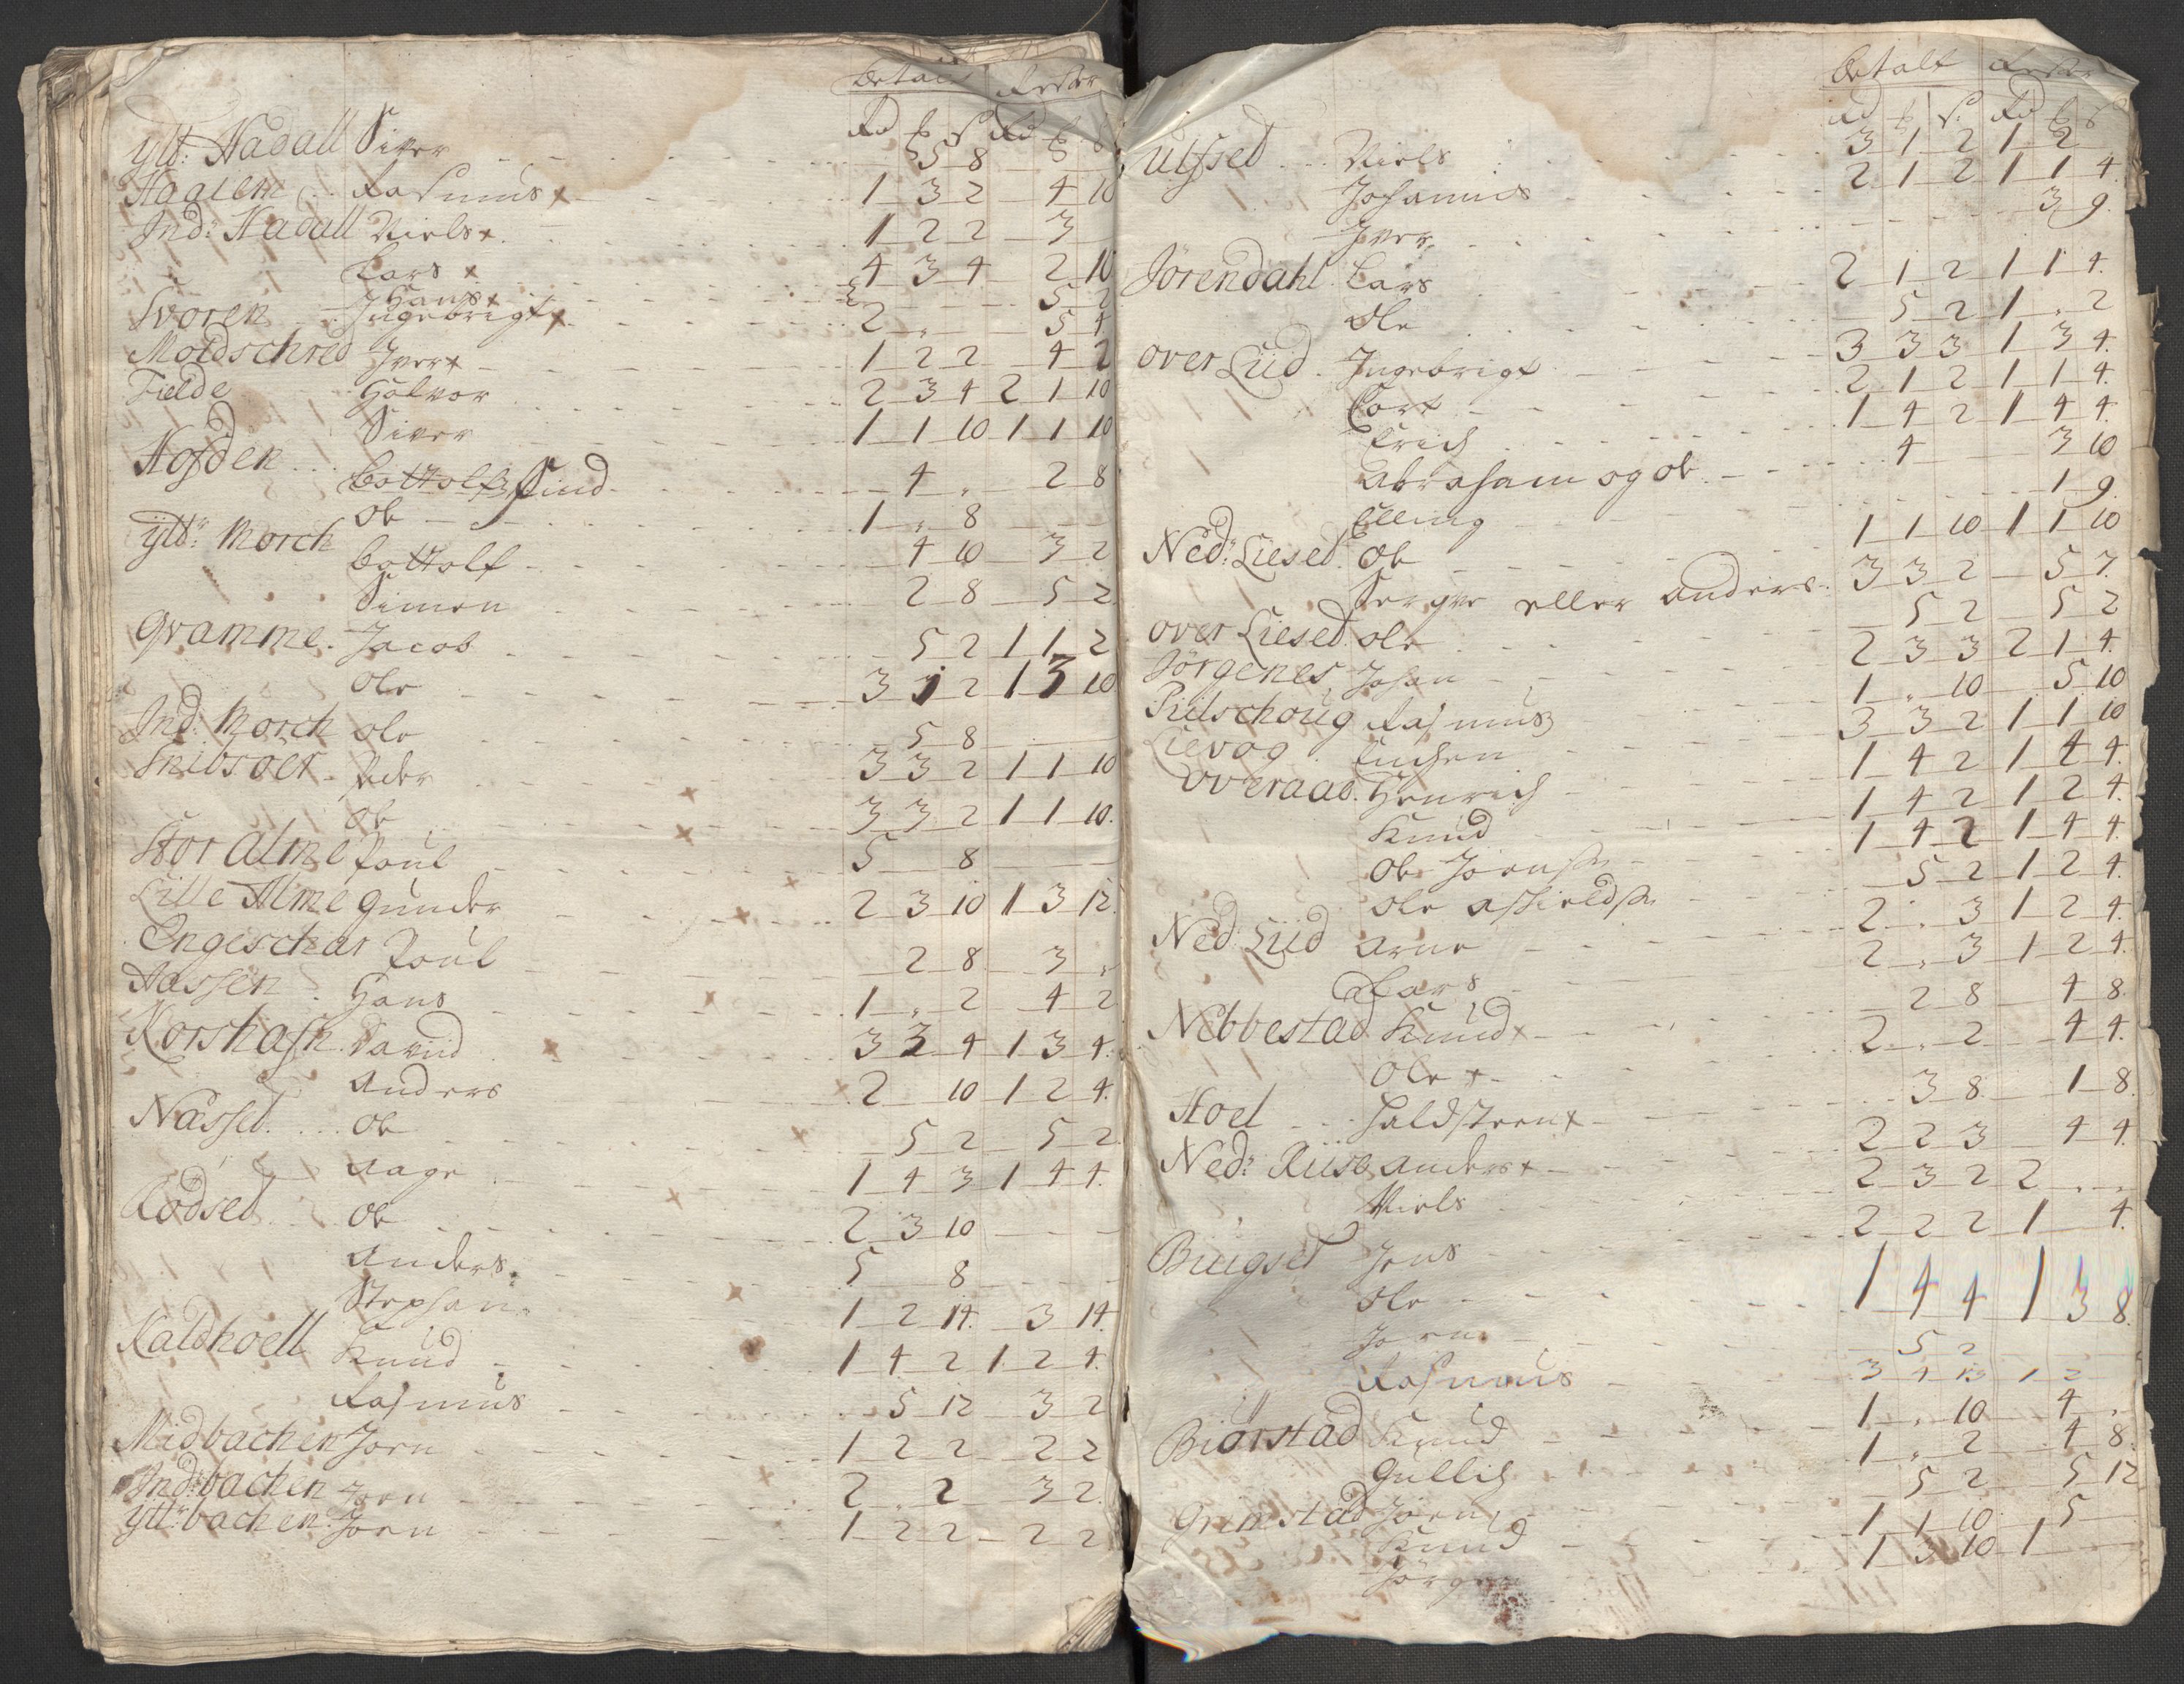 betalt Rester
Rd ß Rd ß
Ytt: Hadall Siver 5 8
Haalem Rasmus x 1 3 2 4 10
Ind: Hadall Niels x 1 2 2 3
Lars x 4 3 4 2 10
Hans x 5 2
Svoren Ingebrigt x 2 5 4
Moldschred Iver x 1 2 2 4 2
Fielde Halvor 2 3 4 2 1 10
Siver 1 1 10 1 1 10
Hofden Bottolf Sind 4 2 8
Ole 1 8
Ytt: Morch Bottolf 4 10 3 2
Simon 2 8 5 2
Qvamme Jacob 5 2 1 1 2
Ole 3 1 2 1 3 10
Ind: Morch Ole 5 8
Snibsöer Peder 3 3 2 1 1 10
Ole 3 3 2 1 1 10
Stor Alme Poul 5 8
Lille Alme Gunder 2 3 10 1 3 12
Engeschar Poul 2 8 3
Aassen Hans 1 2 4 2
Korshafn David 3 3 4 1 3 4
Anders 2 10 1 2 4
Nasset Ole 5 2 5 2
Aage 1 4 3 1 4 4
Rodset Ole 2 3 10
Anders 5 8
Stephan 1 2 14 3 14
Kaldhoell Knud 1 4 2 1 2 4
Rasmus 5 12 3 2
Midbachen Jorn 1 2 2 2 2
Ind: bachen Jorn 2 2 3 2
Ytt: bachen Jorn 1 2 2 2 2
betalt Rester
Rd ß Rd ß
Ulfsed Niels 3 1 2 1 2
Johannes 2 1 2 1 1 4
Iver 3 9
Jörendahl Lars 2 1 2 1 1 4
Ole 5 2 1 2
Over Liid Ingebrigt 3 3 3 1 3 4
Cort 2 1 2 1 1 4
Erich 1 4 2 1 4 4
Abraham og Ole 4 3 10
Elling 1 9
Ned: Liesed Ole 1 1 10 1 1 10
eller Anders 3 3 2 5 7
Over Liesed Ole 5 2 5 2
Jörgenes Johan 2 3 3 2 1 4
Pielschoug Rasmus 1 10 5 10
Lievog 3 3 2 1 1 10
Overaae Henrich 1 4 2 1 4 4
Knud 1 4 2 1 2 4
Ole Jörensn 1 4 2 1 4 4
Ole 5 2 1 2 4
Ned: Liid Arne 2 3 1 2 4
Lars 2 3 1 2 4
Nebbestad Knud x 2 8 4 8
Ole x 2 2 4 4
Hoel Haldsteen x 3 8 1 8
Ned: Riise Anders x 2 2 3 4 4
Niels 2 3 2 2
Biugset Jens 2 2 2 1 4
Ole 1 4 4 1 3 8
Jorn 5 2
Rasmus 3 4 13 1 2
Biörstad Knud 1 10 4
Gullich 1 2 4 8
Grimstad Jorn 5 2 5 12
Knud 1 1 10 5
Jörgen 1 3 10 1